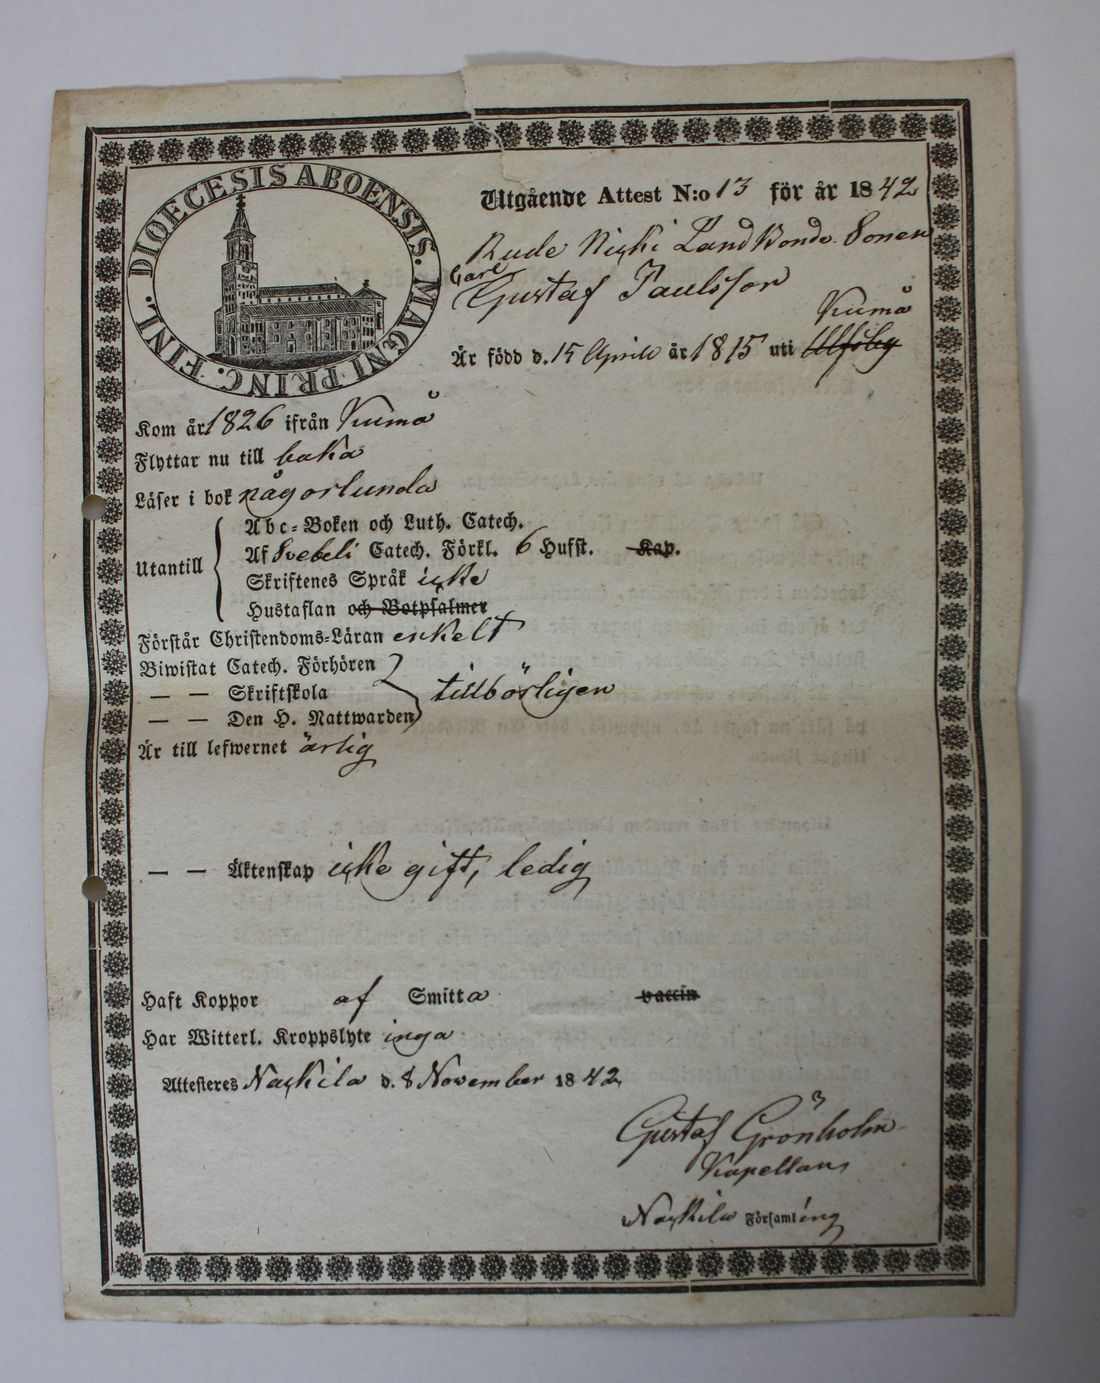 DIOECESIS ABOENSIS. MAGNI PRINC. FINL.
Utgående Attest N:o 13 för år 1842
Rude Nicki Landbonde Sonen
Carl
Gustaf Paulsson
Kumå
Är född d. 15 Aprill år 1815 uti Ulfsby
Kom år 1826 ifrån Kumå
Flyttar nu till baka
Läser i bok någorlunda
Utantill
Abc-Boken och Luth. Catech.
Af Svebeli Catech. Förkl. 6 Hufst. Kap.
Skriftenes Språk icke
Hustaflan och Botpsalmer
Förstår Christendoms-Läran enkelt
Biwistat Catech. Förhören
— — Skriftskola tillbörligen
— — Den H. Nattwarden
Är till lefwernet ärlig
— — Äktenskap icke gift, ledig
Haft Koppor af Smitta vaccin
Har Witterl. Kroppslyte inga
Attesteres Nackila d. 8 November 1842
Gustaf Grönholm
Kapellan
Nackila Församling